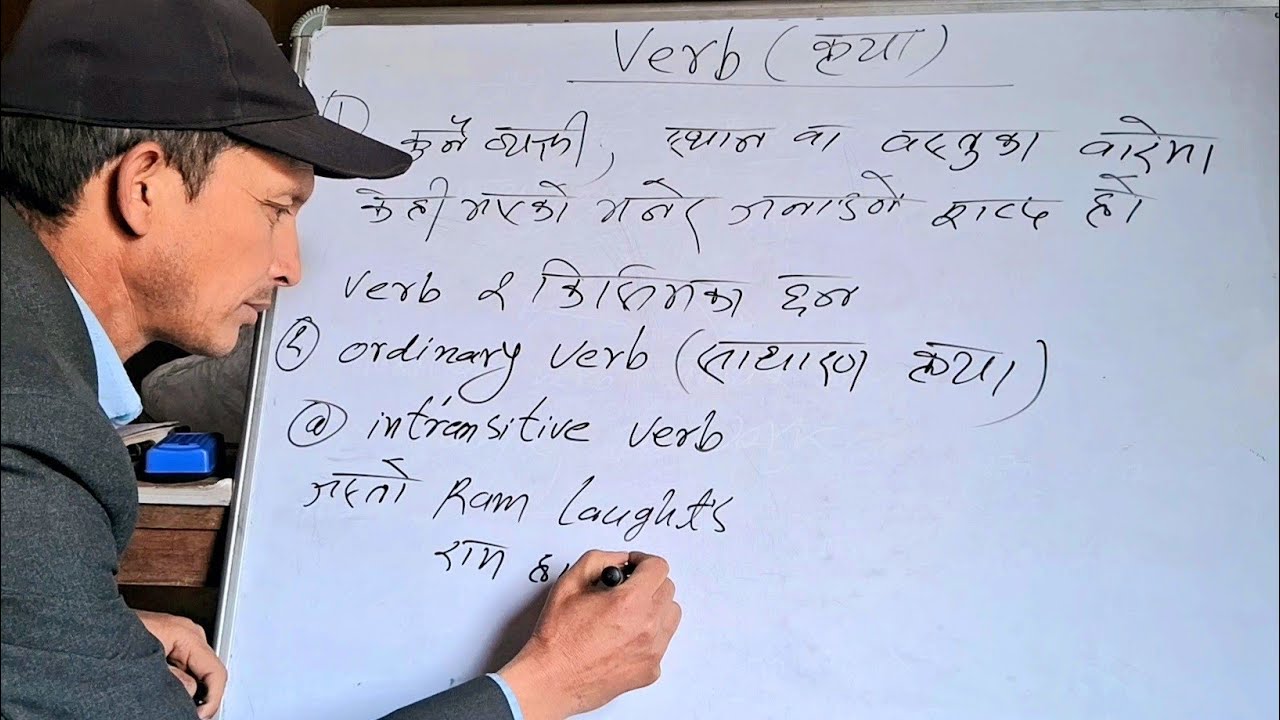 Verb (क्रया)
① कुनै व्यक्ती, स्थान वा वस्तुका वारेमा
केही भएको भनेर जनाउने शब्द हो
verb २ किसिमका छन
① ordinary verb (साधारण क्रया)
ⓐ intransitive verb
जस्तो Ram laught's
राम